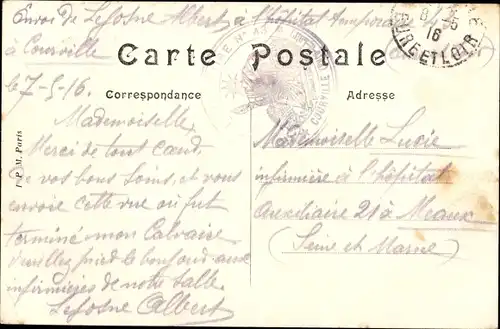 Envoi de Lefosne Albert à l'hôpital temporaire
à Courville
Carte Postale
le 7-5-16.
Correspondance
Adresse
8 -5
16
EURE ET LOIR
COURVILLE
Mademoiselle,
Merci de tout cœur
de vos bons soins, et vous
envoie cette vue où fut
terminé mon Calvaire
le bonjour aux
infirmières de notre salle.
Lefosne Albert
Mademoiselle Lucie
infirmière à l'hôpital
Auxiliaire 21 à Meaux
(Seine et Marne)
P. M. Paris